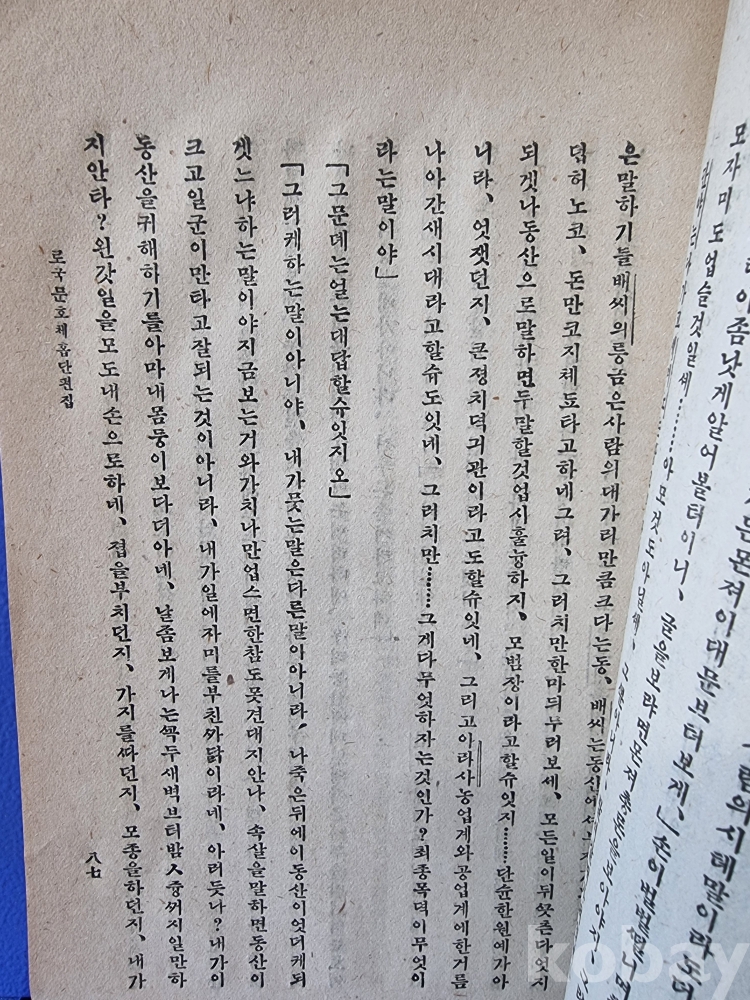 좀낫게알어볼터이니、
모자미도업슬것일세………아모것도아닐세、
은말하기들배씨의릉금은사람의대가리만큼크다는동、배씨는동산에서
덥허노코、돈만코지체됴타고하네그려、그러치만한마듸두러보세、모든일이뒤쑛츤다엇지
되겟나동산으로말하면두말할것업시훌늉하지、모범장이라고할슈잇지………단슌한원예가아
니라、엇잿던지、큰졍치덕긔관이라고도할슈잇네、그리고아라사농업계와공업계에한거름
나아간새시대라고할슈도잇네、그러치만………그게다무엇하자는것인가?최종목덕이무엇이
라는말이야」
「그문뎨는얼는대답할슈잇지오」
「그러케하는말이아니야、내가뭇는말은다른말이아니라、나죽은뒤에이동산이엇더케되
겟느냐하는말이야지금보는거와가치나만업스면한참도못견대지안나、속살을말하면동산이
크고일군이만타고잘되는것이아니라、내가일에자미를부친싸닭이라네、아러듯나?내가이
동산을귀해하기를아마내몸둥이보다더아네、날좀보게나는쏙두새벽브터밤ㅅ즁써지일만하
지안타?왼갓일을모도내손으로하네、졉을부치던지、가지를싸던지、모죵을하던지、내가
로국문호체홉단편집
八七
kobay